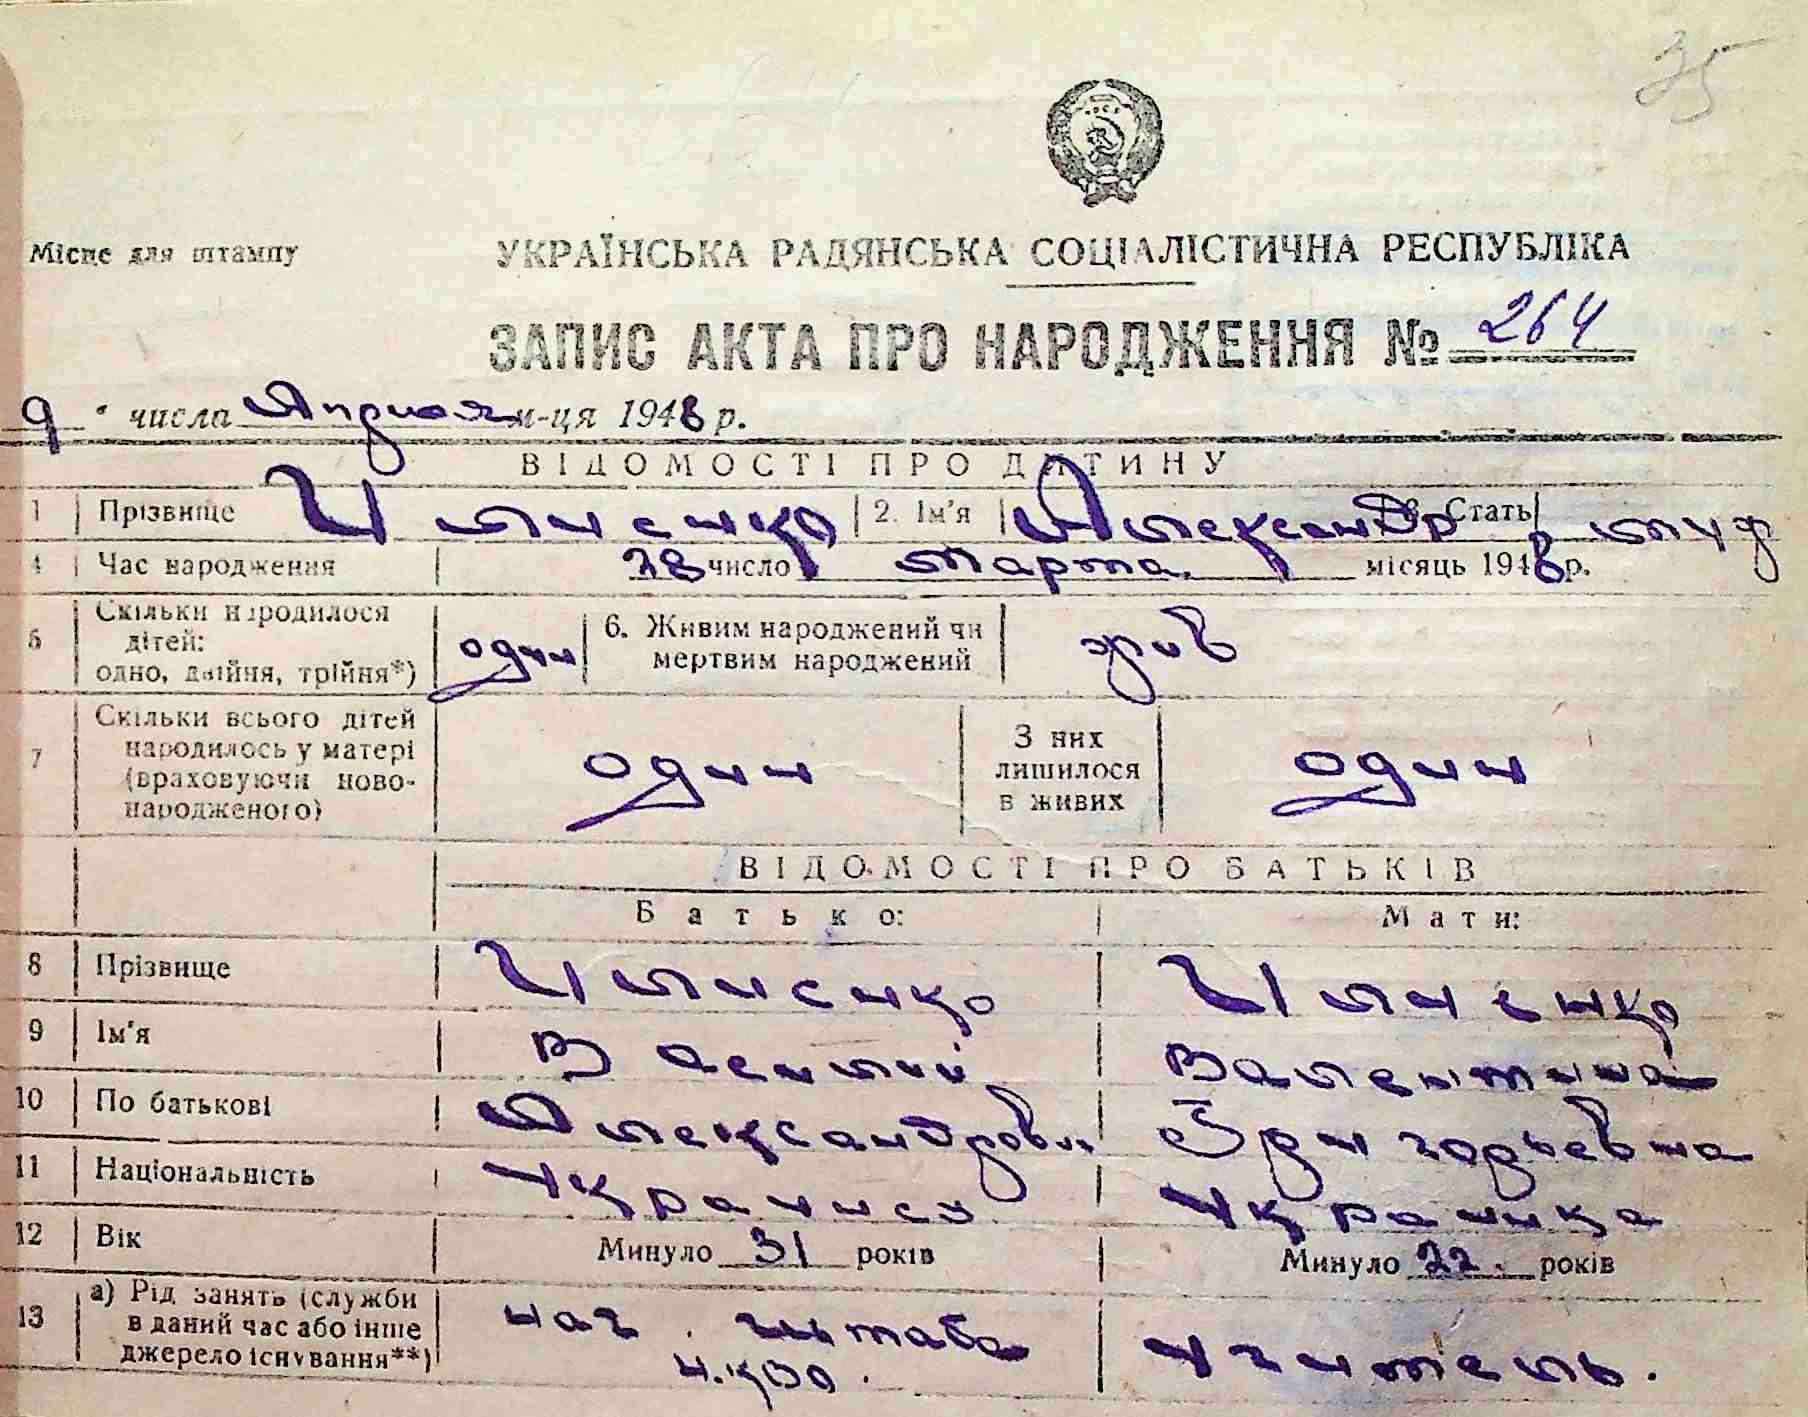 35
Місце для штампу
УКРАЇНСЬКА РАДЯНСЬКА СОЦІАЛІСТИЧНА РЕСПУБЛІКА
ЗАПИС АКТА ПРО НАРОДЖЕННЯ № 264
9 числа Апреля м-ця 1948 р.
ВІДОМОСТІ ПРО ДИТИНУ
1 Прізвище 2. Ім'я Александр 3. Стать муж
4 Час народження 28 число марта. місяць 1948 р.
5 Скільки народилося дітей: одно, двійня, трійня*) один 6. Живим народжений чи мертвим народжений жив
7 Скільки всього дітей народилось у матері (враховуючи ново-народженого) один З них лишилося в живих один
ВІДОМОСТІ ПРО БАТЬКІВ
Батько: Мати:
8 Прізвище
9 Ім'я Василий Валентина
10 По батькові Александрович Григорьевна
11 Національність Украинец Украинка
12 Вік Минуло 31 років Минуло 22. років
13 а) Рід занять (служби в даний час або інше джерело існування**) нач. штаба учитель.